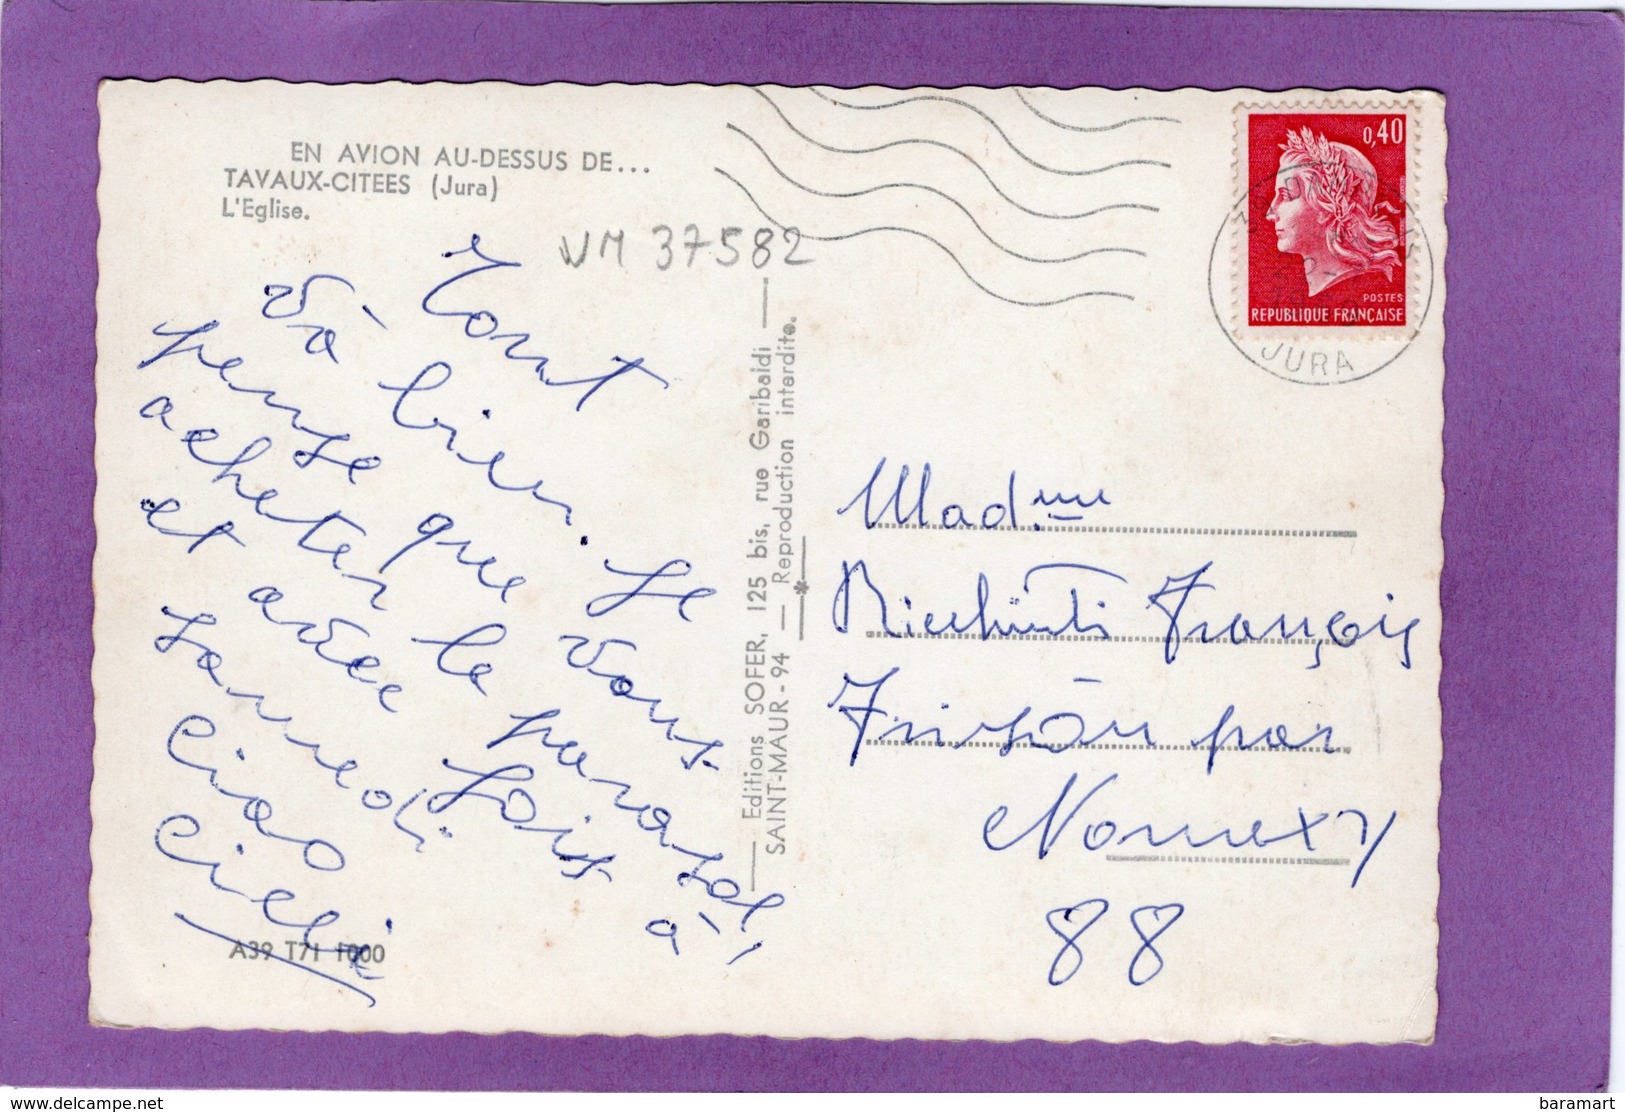 EN AVION AU-DESSUS DE...
TAVAUX-CITEES (Jura)
L'Eglise.
VM 37582
Tout
và bien. Je
pense que vous
acheter le parasol,
et avec Loïs à
samedi.
Ciao
A39 T71 1000
Editions SOFER, 125 bis, rue Garibaldi
SAINT-MAUR - 94 — Reproduction interdite.
0,40
POSTES
REPUBLIQUE FRANÇAISE
JURA
Mad.me
François
par
Nomexy
88
www.delcampe.net
baramart